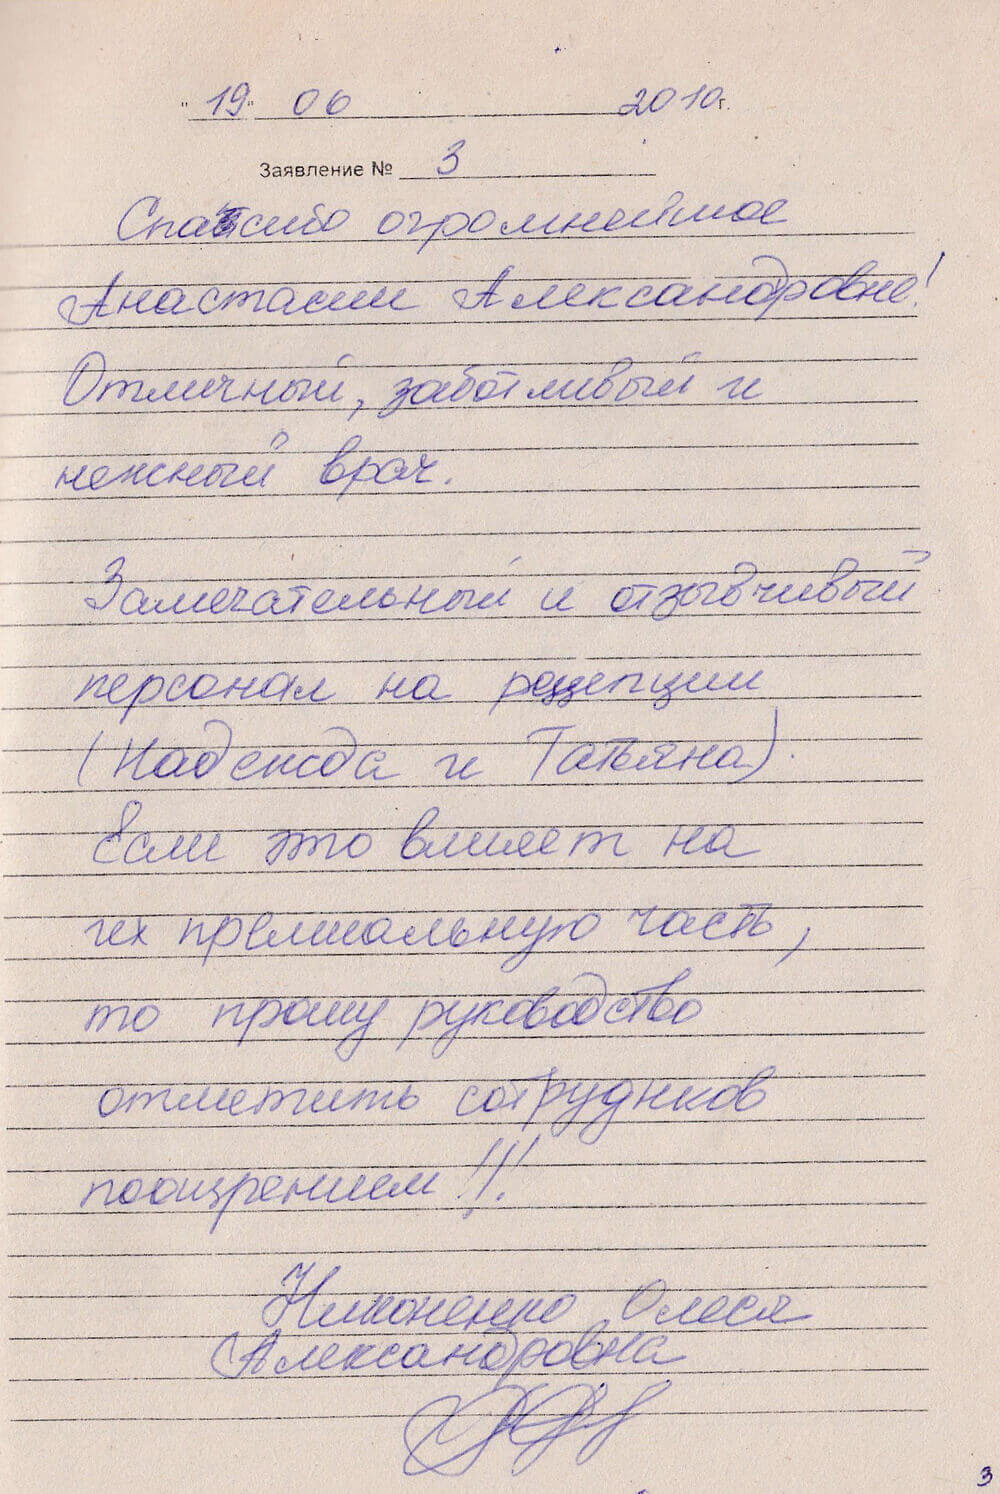 "19" 06 2010г.
Заявление № 3
Спасибо огромнейшое
Анастасии Александровне!
Отличный, заботливый и
нежный врач.
Замечательный и отзывчивый
персонал на рецепции
(Надежда и Татьяна).
Если это влияет на
их премиальную часть,
то прошу руководство
отметить сотрудников
поощрением!!!
Никоненко Олеся
Александровна
3